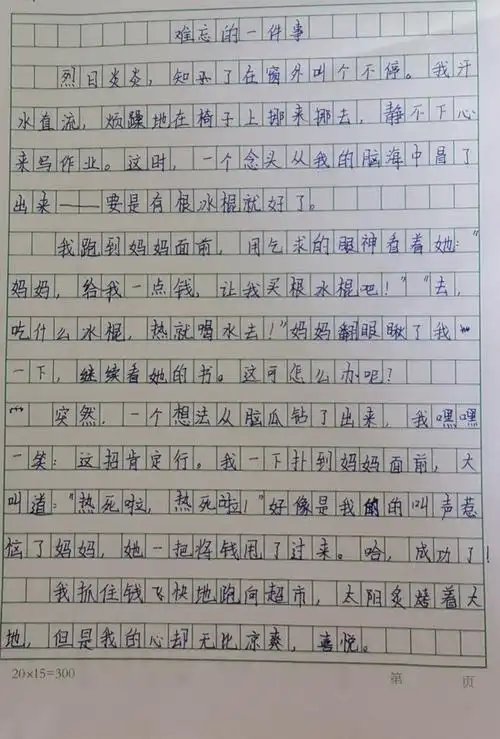 难忘的一件事
烈日炎炎，知了在窗外叫个不停。我汗
水直流，烦躁地在椅子上挪来挪去，静不下心
来写作业。这时，一个念头从我的脑海中冒了
出来——要是有根冰棍就好了。
我跑到妈妈面前，用乞求的眼神看着她："
妈妈，给我一点钱，让我买根冰棍吧！""去，
吃什么冰棍，热就喝水去！"妈妈翻眼瞅了我
一下，继续看她的书。这可怎么办呢？
突然，一个想法从脑瓜钻了出来，我嘿嘿
一笑：这招肯定行。我一下扑到妈妈面前，大
叫道："热死啦，热死啦！"好像是我的的叫声惹
恼了妈妈，她一把将钱甩了过来。哈，成功了！
我抓住钱飞快地跑向超市，太阳炙烤着大
地，但是我的心却无比凉爽，喜悦。
20×15=300 第 页